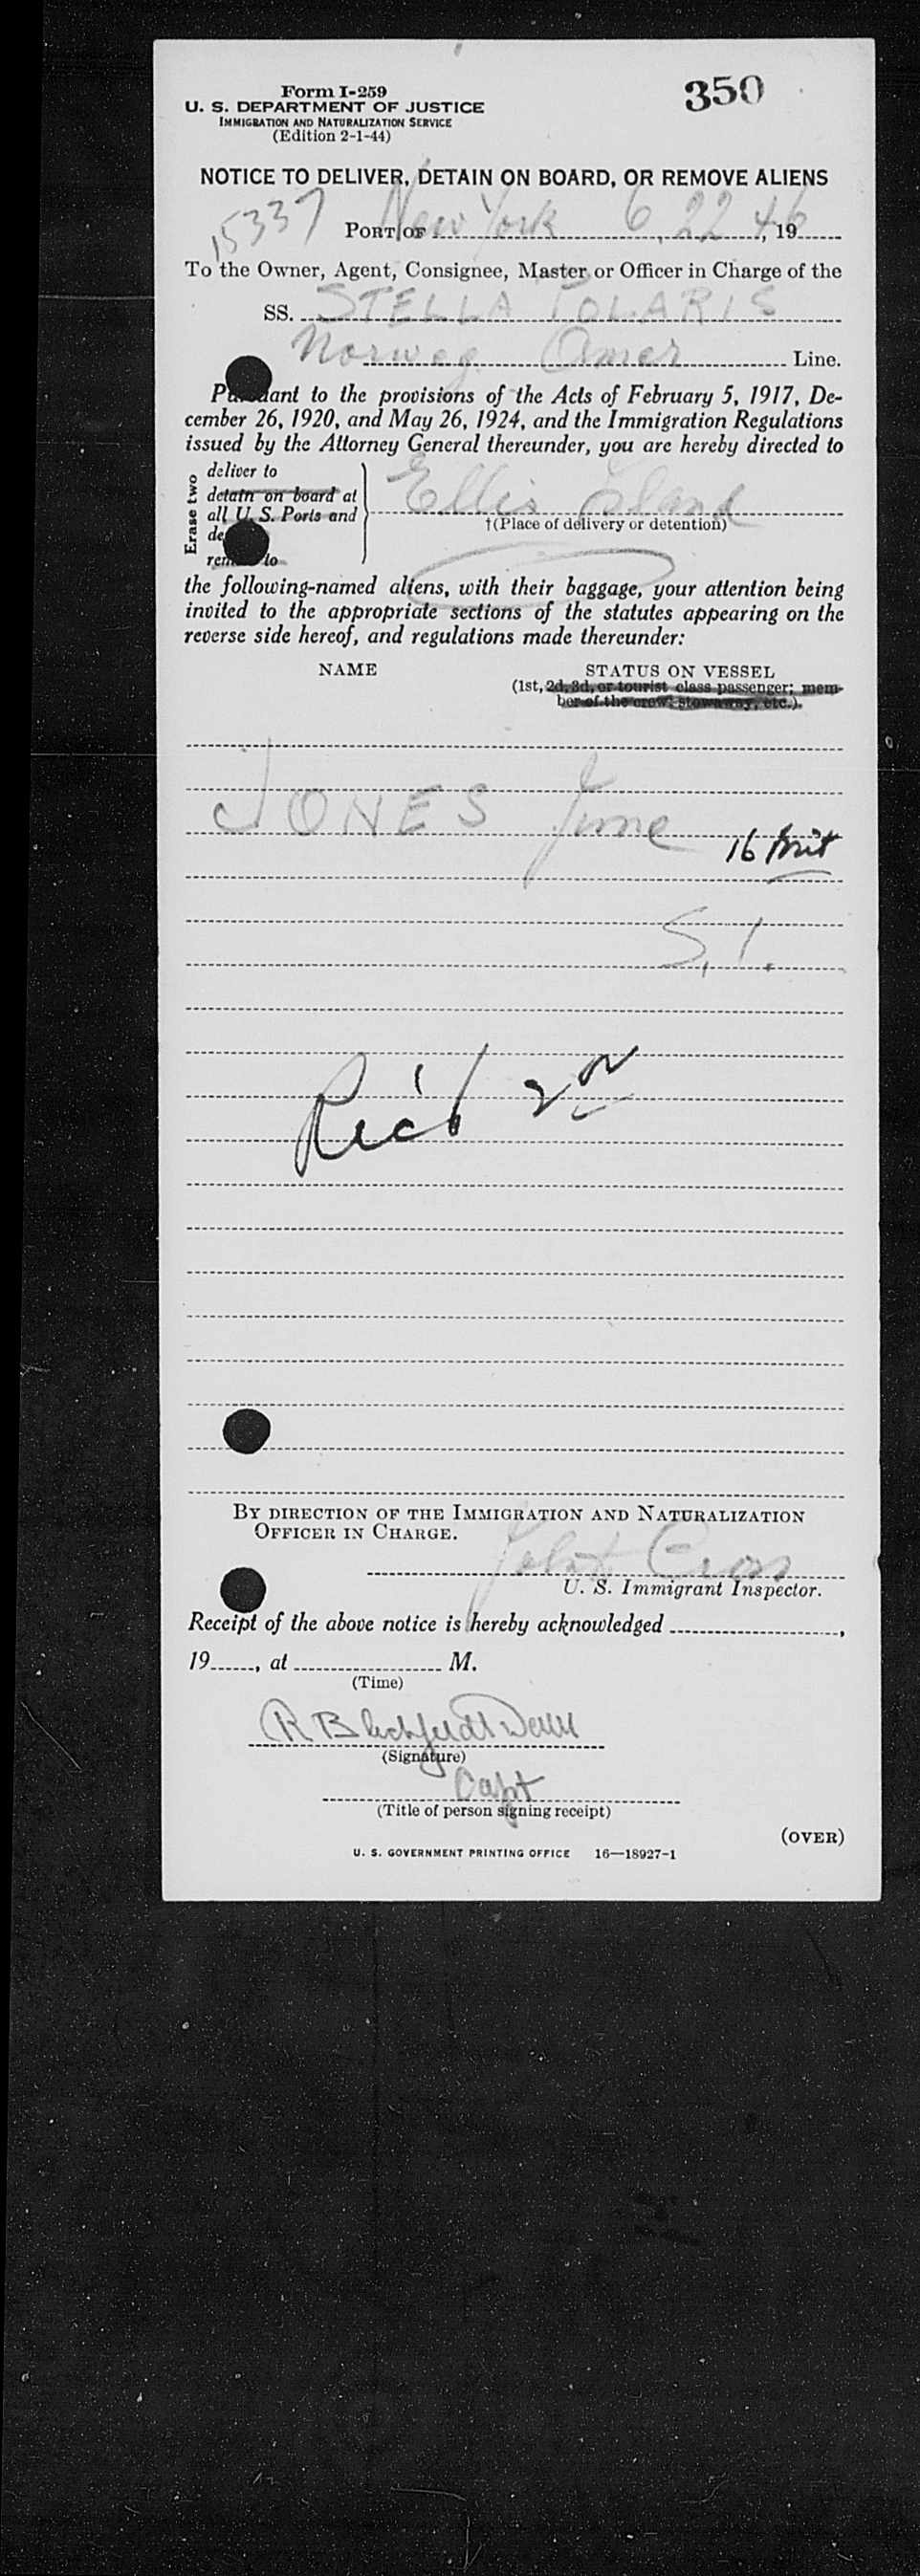 Form I-259
U. S. DEPARTMENT OF JUSTICE
IMMIGRATION AND NATURALIZATION SERVICE
(Edition 2-1-44)
350
NOTICE TO DELIVER, DETAIN ON BOARD, OR REMOVE ALIENS
15337
PORT OF New York 6, 22 46, 19
To the Owner, Agent, Consignee, Master or Officer in Charge of the
SS. STELLA POLARIS
Norweg Amer Line.
Pursuant to the provisions of the Acts of February 5, 1917, De-
cember 26, 1920, and May 26, 1924, and the Immigration Regulations
issued by the Attorney General thereunder, you are hereby directed to
Erase two
deliver to
detain on board at
all U. S. Ports and
remove to
Ellis Island
†(Place of delivery or detention)
the following-named aliens, with their baggage, your attention being
invited to the appropriate sections of the statutes appearing on the
reverse side hereof, and regulations made thereunder:
NAME STATUS ON VESSEL
(1st, 2d, 3d, or tourist class passenger; mem-
ber of the crew; stowaway, etc.).
JONES June 16 Brit
S. I.
Rec'd
BY DIRECTION OF THE IMMIGRATION AND NATURALIZATION
OFFICER IN CHARGE.
U. S. Immigrant Inspector.
Receipt of the above notice is hereby acknowledged ,
19 , at M.
(Time)
(Signature)
Capt
(Title of person signing receipt)
(OVER)
U. S. GOVERNMENT PRINTING OFFICE 16—18927-1